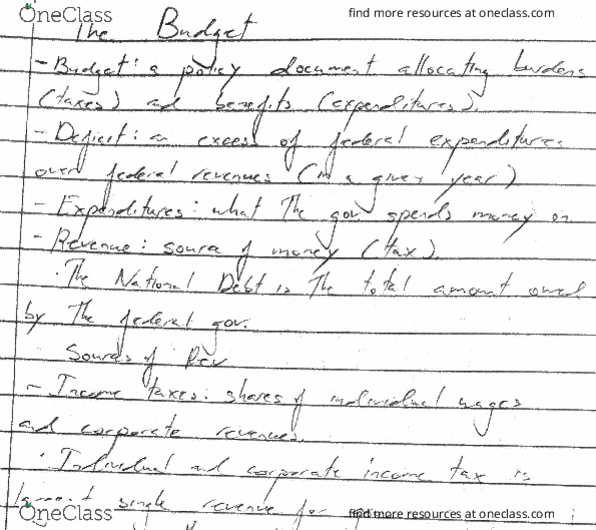 OneClass
find more resources at oneclass.com
The Budget
- Budget: a policy document allocating burdens
(taxes) and benefits (expenditures).
- Deficit: an excess of federal expenditures
over federal revenues (in a given year)
- Expenditures: what the gov spends money on
- Revenue: source of money (tax).
· The National Debt is the total amount owed
by the federal gov.
Sources of Rev
- Income taxes: shares of individual wages
and corporate revenues
· Individual and corporate income tax is
single revenue for
OneClass
find more resources at oneclass.com